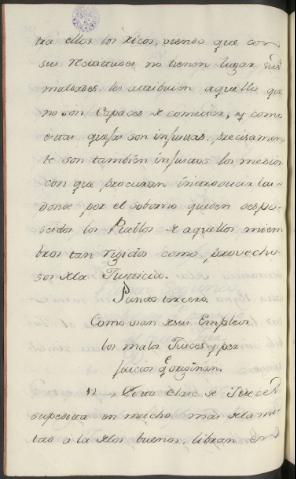 tra ellos los ricos, viendo que con
sus Riquezas no tienen lugar sus
maldades los atribuien aquello que
no son capaces de cometer, y como
estas quejas son injustas, precisamen-
te son también injustos los medios
con que procuran introducir las
donde por el soborno quedan despo-
seidos los Pueblos de aquellos miem-
bros tan rigidos como provecho
sos de la Justicia.
Punto tercero.
Como usan de sus Empleos
los malos Jueces y per
juicios q.e originan.
11 Otra clase de Jueces
superior en mucho mas de la mi-
tad à la de los buenos, libran en